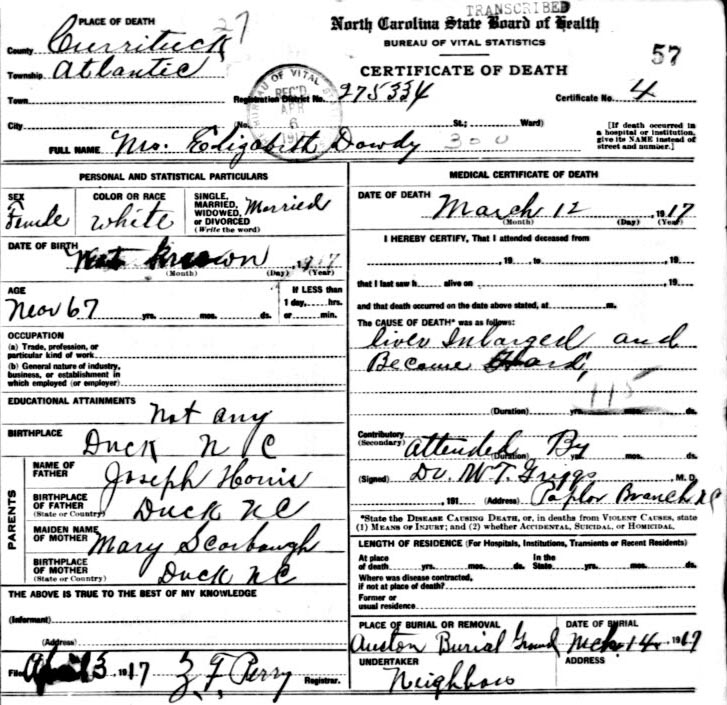 TRANSCRIBED
27
PLACE OF DEATH
North Carolina State Board of Health
BUREAU OF VITAL STATISTICS
57
County Currituck
Township Atlantic
CERTIFICATE OF DEATH
Town
BUREAU OF VITAL
REC'D
APR
6
Registration District No. 275334
Certificate No. 4
City
(No.
St.; Ward)
[If death occurred in a hospital or institution, give its NAME instead of street and number.]
FULL NAME Mrs. Elizabeth Dowdy
300
PERSONAL AND STATISTICAL PARTICULARS
SEX
Female
COLOR OR RACE
white
SINGLE, MARRIED, WIDOWED, OR DIVORCED (Write the word)
Married
DATE OF BIRTH
Not Known
(Month) (Day) (Year)
AGE
Near 67 yrs. mos. ds.
If LESS than
1 day, hrs.
or min.
OCCUPATION
(a) Trade, profession, or
particular kind of work
(b) General nature of industry,
business, or establishment in
which employed (or employer)
EDUCATIONAL ATTAINMENTS
Not any
BIRTHPLACE
Duck N C
PARENTS
NAME OF FATHER
Joseph Harris
BIRTHPLACE OF FATHER
(State or Country)
Duck NC
MAIDEN NAME OF MOTHER
Mary Scarbaugh
BIRTHPLACE OF MOTHER
(State or Country)
Duck NC
THE ABOVE IS TRUE TO THE BEST OF MY KNOWLEDGE
(Informant)
(Address)
Filed April 3, 1917 Z F Perry Registrar.
MEDICAL CERTIFICATE OF DEATH
DATE OF DEATH
March 12, 1917
(Month) (Day) (Year)
I HEREBY CERTIFY, That I attended deceased from
, 19 , to , 19
that I last saw h alive on , 19
and that death occurred on the date above stated, at m.
The CAUSE OF DEATH* was as follows:
liver Inlarged and
Became Hard,
115
(Duration) yrs. mos. ds.
Contributory
(Secondary)
Attended By
(Duration) yrs. mos. ds.
(Signed) Dr. W T. Griggs, M. D.
, 191 (Address) Poplar Branch NC
*State the DISEASE CAUSING DEATH, or, in deaths from VIOLENT CAUSES, state
(1) MEANS OF INJURY; and (2) whether ACCIDENTAL, SUICIDAL, OR HOMICIDAL.
LENGTH OF RESIDENCE (For Hospitals, Institutions, Transients or Recent Residents)
At place
of death yrs. mos. ds.
In the
State yrs. mos. ds.
Where was disease contracted,
if not at place of death?
Former or
usual residence
PLACE OF BURIAL OR REMOVAL
Auston Burial Ground
DATE OF BURIAL
Mch 14, 1917
UNDERTAKER
Neighbors
ADDRESS